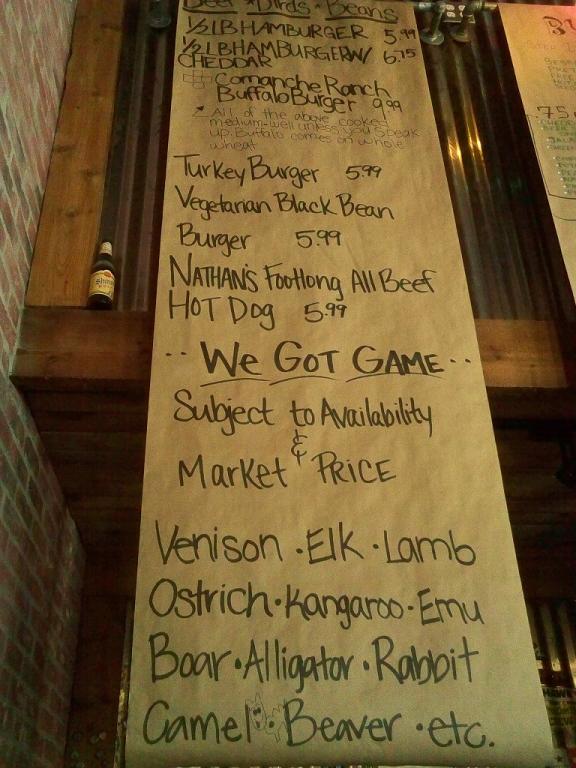 Beef * Birds * Beans
1/2 LB HAMBURGER 5.99
1/2 LB HAMBURGER W/ 6.75
CHEDDAR
Comanche Ranch
Buffalo Burger 9.99
* All of the above cooked
medium-well unless you speak
up. Buffalo comes on whole
wheat
Turkey Burger 5.99
Vegetarian Black Bean
Burger 5.99
NATHAN'S Footlong All Beef
HOT DOG 5.99
·· WE GOT GAME ··
Subject to Availability
&
Market PRICE
Venison · Elk · Lamb
Ostrich · Kangaroo · Emu
Boar · Alligator · Rabbit
Camel Beaver · etc.
Shiner
75¢